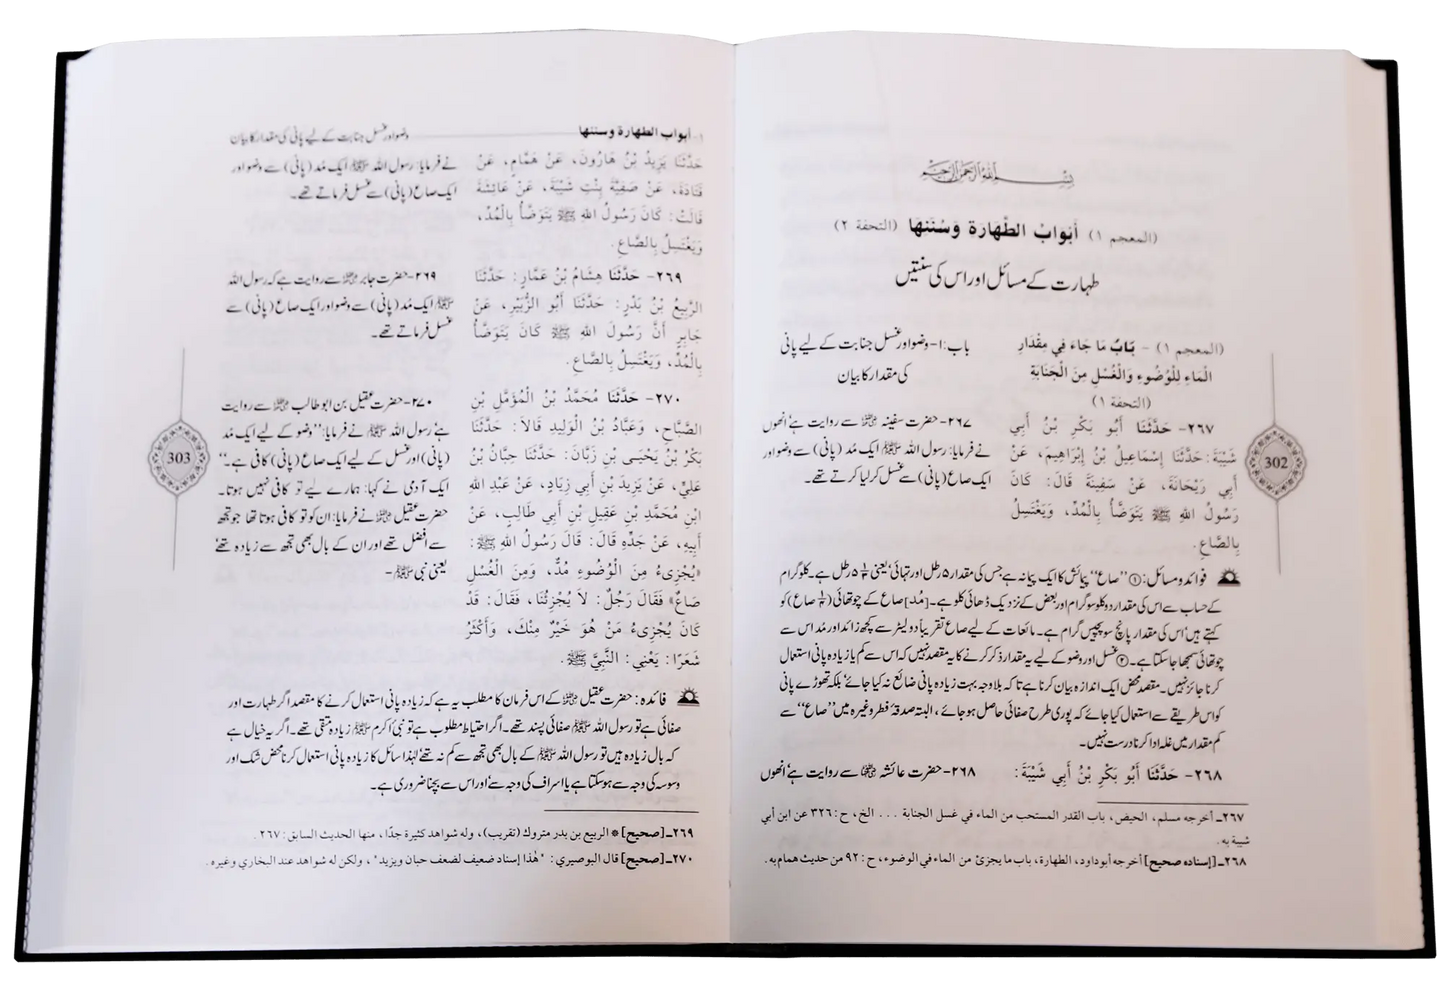 بسم الله الرحمن الرحيم
(المعجم ١) أَبْوَابُ الطَّهَارَةِ وَسُنَنِهَا (التحفة ٢)
طہارت کے مسائل اور اس کی سنتیں
(المعجم ١) - بَابُ مَا جَاءَ فِي مِقْدَارِ
الْمَاءِ لِلْوُضُوءِ وَالْغُسْلِ مِنَ الْجَنَابَةِ
(التحفة ١)
باب:۱- وضو اور غسل جنابت کے لیے پانی
کی مقدار کا بیان
٢٦٧- حَدَّثَنَا أَبُو بَكْرِ بْنُ أَبِي
شَيْبَةَ: حَدَّثَنَا إِسْمَاعِيلُ بْنُ إِبْرَاهِيمَ، عَنْ
أَبِي رَيْحَانَةَ، عَنْ سَفِينَةَ قَالَ: كَانَ
رَسُولُ اللهِ ﷺ يَتَوَضَّأُ بِالْمُدِّ، وَيَغْتَسِلُ
بِالصَّاعِ.
۲۶۷- حضرت سفینہ ؓ سے روایت ہے‘ انھوں
نے فرمایا: رسول اللہ ﷺ ایک مُد (پانی) سے وضو اور
ایک صاع (پانی) سے غسل کر لیا کرتے تھے۔
فوائد و مسائل: ① ’’صاع‘‘ پیمائش کا ایک پیمانہ ہے جس کی مقدار ۵ رطل اور تہائی‘ یعنی ۵ ۱/۳ رطل ہے۔ کلوگرام
کے حساب سے اس کی مقدار دو کلو سو گرام اور بعض کے نزدیک ڈھائی کلو ہے۔ [مُد] صاع کے چوتھائی (۱/۴ صاع) کو
کہتے ہیں‘ اس کی مقدار پانچ سو پچیس گرام ہے۔ مائعات کے لیے صاع تقریباً دو لیٹر سے کچھ زائد اور مُد اس سے
چوتھائی سمجھا جا سکتا ہے۔ ② غسل اور وضو کے لیے یہ مقدار ذکر کرنے کا یہ مقصد نہیں کہ اس سے کم یا زیادہ پانی استعمال
کرنا جائز نہیں۔ مقصد محض ایک اندازہ بیان کرنا ہے تا کہ بلا وجہ بہت زیادہ پانی ضائع نہ کیا جائے‘ بلکہ تھوڑے پانی
کو اس طریقے سے استعمال کیا جائے کہ پوری طرح صفائی حاصل ہو جائے، البتہ صدقۂ فطر وغیرہ میں ’’صاع‘‘ سے
کم مقدار میں غلہ ادا کرنا درست نہیں۔
٢٦٨- حَدَّثَنَا أَبُو بَكْرِ بْنُ أَبِي شَيْبَةَ:
۲۶۸- حضرت عائشہ ؓ سے روایت ہے‘ انھوں
٢٦٧ـ أخرجه مسلم، الحيض، باب القدر المستحب من الماء في غسل الجنابة . . . الخ، ح: ٣٢٦ عن ابن أبي
شيبة به.
٢٦٨ـ [إسناده صحيح] أخرجه أبوداود، الطهارة، باب ما يجزئ من الماء في الوضوء، ح: ٩٢ من حديث همام به.
302
أبواب الطهارة وسننها
وضو اور غسل جنابت کے لیے پانی کی مقدار کا بیان
حَدَّثَنَا يَزِيدُ بْنُ هَارُونَ، عَنْ هَمَّامٍ، عَنْ
قَتَادَةَ، عَنْ صَفِيَّةَ بِنْتِ شَيْبَةَ، عَنْ عَائِشَةَ
قَالَتْ: كَانَ رَسُولُ اللهِ ﷺ يَتَوَضَّأُ بِالْمُدِّ،
وَيَغْتَسِلُ بِالصَّاعِ.
نے فرمایا: رسول اللہ ﷺ ایک مُد (پانی) سے وضو اور
ایک صاع (پانی) سے غسل فرماتے تھے۔
٢٦٩- حَدَّثَنَا هِشَامُ بْنُ عَمَّارٍ: حَدَّثَنَا
الرَّبِيعُ بْنُ بَدْرٍ: حَدَّثَنَا أَبُو الزُّبَيْرِ، عَنْ
جَابِرٍ أَنَّ رَسُولَ اللهِ ﷺ كَانَ يَتَوَضَّأُ
بِالْمُدِّ، وَيَغْتَسِلُ بِالصَّاعِ.
۲۶۹- حضرت جابر ؓ سے روایت ہے کہ رسول اللہ
ﷺ ایک مُد (پانی) سے وضو اور ایک صاع (پانی) سے
غسل فرماتے تھے۔
٢٧٠- حَدَّثَنَا مُحَمَّدُ بْنُ الْمُؤَمَّلِ بْنِ
الصَّبَّاحِ، وَعَبَّادُ بْنُ الْوَلِيدِ قَالَا: حَدَّثَنَا
بَكْرُ بْنُ يَحْيَى بْنِ زَبَّانَ: حَدَّثَنَا حِبَّانُ بْنُ
عَلِيٍّ، عَنْ يَزِيدَ بْنِ أَبِي زِيَادٍ، عَنْ عَبْدِ اللهِ
ابْنِ مُحَمَّدِ بْنِ عَقِيلِ بْنِ أَبِي طَالِبٍ، عَنْ
أَبِيهِ، عَنْ جَدِّهِ قَالَ: قَالَ رَسُولُ اللهِ ﷺ:
«يُجْزِىءُ مِنَ الْوُضُوءِ مُدٌّ، وَمِنَ الْغُسْلِ
صَاعٌ» فَقَالَ رَجُلٌ: لَا يُجْزِئُنَا، فَقَالَ: قَدْ
كَانَ يُجْزِىءُ مَنْ هُوَ خَيْرٌ مِنْكَ، وَأَكْثَرُ
شَعَرًا: يَعْنِي: النَّبِيَّ ﷺ.
۲۷۰- حضرت عقیل بن ابو طالب ؓ سے روایت
ہے‘ رسول اللہ ﷺ نے فرمایا: ’’وضو کے لیے ایک مُد
(پانی) اور غسل کے لیے ایک صاع (پانی) کافی ہے۔‘‘
ایک آدمی نے کہا: ہمارے لیے تو کافی نہیں ہوتا۔
حضرت عقیل ؓ نے فرمایا: ان کو تو کافی ہوتا تھا جو تجھ
سے افضل تھے اور ان کے بال بھی تجھ سے زیادہ تھے‘
یعنی نبی ﷺ۔
فائدہ: حضرت عقیل ؓ کے اس فرمان کا مطلب یہ ہے کہ زیادہ پانی استعمال کرنے کا مقصد اگر طہارت اور
صفائی ہے تو رسول اللہ ﷺ صفائی پسند تھے۔ اگر احتیاط مطلوب ہے تو نبی اکرم ﷺ زیادہ متقی تھے۔ اگر یہ خیال ہے
کہ بال زیادہ ہیں تو رسول اللہ ﷺ کے بال بھی تجھ سے کم نہ تھے‘ لہٰذا سائل کا زیادہ پانی استعمال کرنا محض شک اور
وسوسہ کی وجہ سے ہو سکتا ہے یا اسراف کی وجہ سے اور اس سے بچنا ضروری ہے۔
٢٦٩ـ [صحيح] * الربيع بن بدر متروك (تقريب)، وله شواهد كثيرة جدًا، منها الحديث السابق: ٢٦٧.
٢٧٠ـ [صحيح] قال البوصيري: "هٰذا إسناد ضعيف لضعف حبان ويزيد"، ولكن له شواهد عند البخاري وغيره.
303